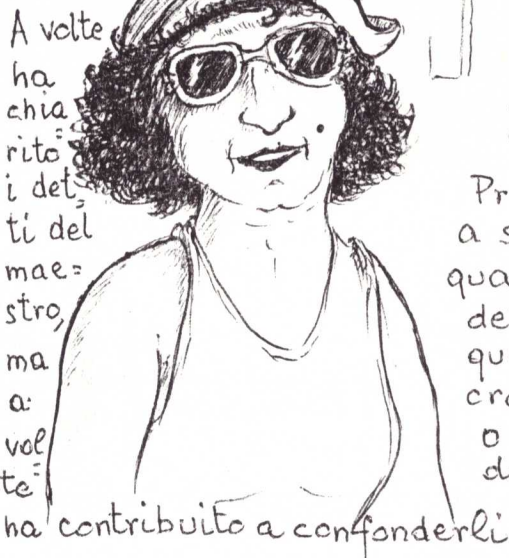 A volte
ha
chia=
rito
i det=
ti del
mae=
stro,
ma
a:
vol=
te
ha contribuito a confonderli
Pr
a s
qua
de
qu
cre
o
d